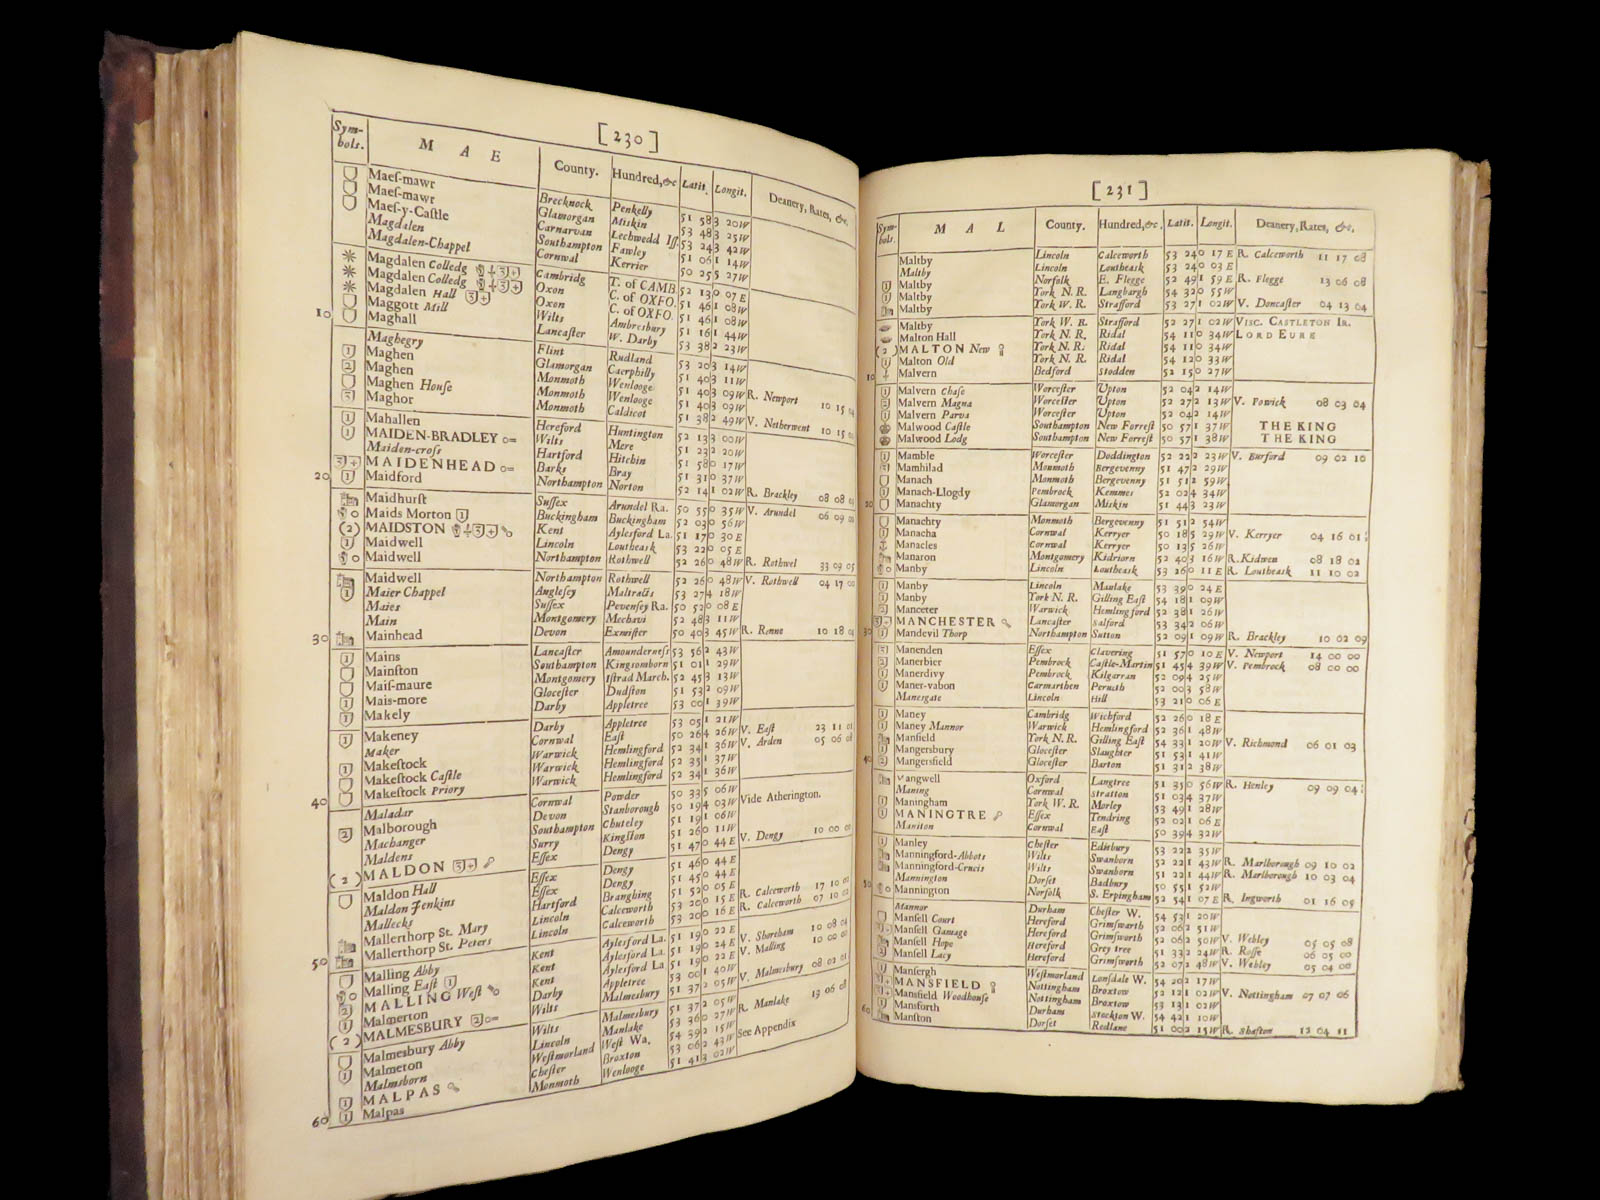 [ 230 ]
Sym-bols. M A E County. Hundred,&c Latit. Longit. Deanery, Rates, &c.
Maeſ-mawr Brecknock Penkelly 51 58 3 20W
Maeſ-mawr Glamorgan Miskin 53 48 3 25W
Maeſ-y-Caſtle Carnarvan Lechwedd Iſſ. 53 24 3 42W
Magdalen Southampton Fawley 51 06 1 14W
Magdalen-Chappel Cornwal Kerrier 50 25 5 27W
Magdalen Colledg Cambridg T. of CAMB. 52 13 0 07 E
Magdalen Colledg Oxon C. of OXFO. 51 46 1 08W
Magdalen Hall Oxon C. of OXFO. 51 46 1 08W
Maggott Mill Wilts Ambresbury 51 16 1 44W
10 Maghall Lancaſter W. Darby 53 38 2 23W
Maghegry Flint Rudland 53 20 3 14W
Maghen Glamorgan Caerphilly 51 40 3 11W
Maghen Monmoth Wenlooge 51 40 3 09W R. Newport 10 15 04
Maghen Houſe Monmoth Wenlooge 51 40 3 09W
Maghor Monmoth Caldicot 51 38 2 49W V. Netherwent 10 15
Mahallen Hereford Huntington 52 13 3 00W
MAIDEN-BRADLEY Wilts Mere 51 23 2 20W
Maiden-croſs Hartford Hitchin 51 58 0 17W
MAIDENHEAD Barks Bray 51 31 0 37W
20 Maidford Northampton Norton 52 14 1 02W R. Brackley 08 08
Maidhurſt Suſſex Arundel Ra. 50 55 0 35W V. Arundel 06 09
Maids Morton Buckingham Buckingham 52 03 0 56W
(2) MAIDSTON Kent Aylesford La. 51 17 0 30 E
Maidwell Lincoln Loutheask 53 22 0 05 E
Maidwell Northampton Rothwell 52 26 0 48W R. Rothwel 33 09 05
Maidwell Northampton Rothwell 52 26 0 48W V. Rothwell 04 17 00
Maier Chappel Angleſey Maltraẽs 53 27 4 18W
Maies Suſſex Pevenſey Ra. 50 52 0 08 E
Main Montgomery Mechavi 52 48 3 11W
30 Mainhead Devon Exmiſter 50 40 3 45W R. Renne 10 18 04
Mains Lancaſter Amounderneſs 53 56 2 43W
Mainſton Southampton Kingsomborn 51 01 1 29W
Maiſ-maure Montgomery Iſtrad March. 52 45 3 13W
Mais-more Gloceſter Dudſton 51 53 2 09W
Makely Darby Appletree 53 00 1 39W
Makeney Darby Appletree 53 05 1 21W
Maker Cornwal Eaſt 50 26 4 26W V. Eaſt 23 11 01
Makeſtock Warwick Hemlingford 52 34 1 36W V. Arden 05 06 08
Makeſtock Caſtle Warwick Hemlingford 52 35 1 37W
40 Makeſtock Priory Warwick Hemlingford 52 34 1 36W
Maladar Cornwal Powder 50 33 5 06W
Malborough Devon Stanborough 50 19 4 03W Vide Atherington.
Machanger Southampton Chuteley 51 19 1 06W
Maldens Surry Kingſton 51 26 0 11W
(2) MALDON Eſſex Dengy 51 47 0 44 E V. Dengy 10 00 00
Maldon Hall Eſſex Dengy 51 46 0 44 E
Maldon Jenkins Eſſex Dengy 51 45 0 44 E
Mallecks Hartford Branghing 51 52 0 05 E
Mallerthorp St. Mary Lincoln Calceworth 53 20 0 15 E R. Calceworth 17 10 02
50 Mallerthorp St. Peters Lincoln Calceworth 53 20 0 16 E R. Calceworth 07 10 02
Malling Abby Kent Aylesford La. 51 19 0 22 E
Malling Eaſt Kent Aylesford La. 51 19 0 24 E V. Shoreham 10 08 04
MALLING Weſt Kent Aylesford La 51 19 0 22 E V. Malling 10 00 00
Malmerton Darby Appletree 53 00 1 40W
(2) MALMESBURY Wilts Malmesbury 51 37 2 05W V. Malmesbury 08 02 01
Malmesbury Abby Wilts Malmesbury 51 37 2 05W
Malmeton Lincoln Manlake 53 36 0 27W R. Manlake 13 06 08
Malmsborn Weſtmorland Weſt Wa. 54 39 2 15W
MALPAS Cheſter Broxton 53 06 2 43W See Appendix
60 Malpas Monmoth Wenlooge 51 41 3 02W
[ 231 ]
Sym-bols. M A L County. Hundred,&c. Latit. Longit. Deanery, Rates, &c.
Maltby Lincoln Calceworth 53 24 0 17 E R. Calceworth 11 17 08
Maltby Lincoln Loutheask 53 24 0 03 E
Maltby Norfolk E. Flegge 52 49 1 59 E R. Flegge 13 06 08
Maltby York N. R. Langbargh 54 32 0 55W
Maltby York W. R. Strafford 53 27 1 02W V. Doncaſter 04 13 04
Maltby York W. R. Strafford 52 27 1 02W VISC. CASTLETON IR.
Malton Hall York N. R. Ridal 54 11 0 34W LORD EURE
(2) MALTON New York N. R. Ridal 54 11 0 34W
Malton Old York N. R. Ridal 54 12 0 33W
10 Malvern Bedford Stodden 52 15 0 27W
Malvern Chaſe Worceſter Upton 52 04 2 14W
Malvern Magna Worceſter Upton 52 27 2 13W V. Powick 08 03 04
Malvern Parva Worceſter Upton 52 04 2 14W
Malwood Caſtle Southampton New Forreſt 50 57 1 37W THE KING
Malwood Lodg Southampton New Forreſt 50 57 1 38W THE KING
Mamble Worceſter Doddington 52 22 2 23W V. Burford 09 02 10
Mamhilad Monmoth Bergevenny 51 47 2 29W
Manach Monmoth Bergevenny 51 51 2 59W
Manach-Llogdy Pembrock Kemmes 52 02 4 34W
20 Manachty Glamorgan Miskin 51 44 3 23W
Manachty Monmoth Bergevenny 51 51 2 54W
Manacha Cornwal Kerryer 50 18 5 29W V. Kerryer 04 16 01
Manacles Cornwal Kerryer 50 13 5 26W
Manaron Montgomery Kidriorn 52 40 3 16W R. Kidwen 08 18 02
Manby Lincoln Loutheask 53 26 0 11 E R. Loutheask 11 10 02
Manby Lincoln Manlake 53 39 0 24 E
Manby York N. R. Gilling Eaſt 54 18 1 09W
Manceter Warwick Hemlingford 52 38 1 26W
MANCHESTER Lancaſter Salford 53 34 2 06W
30 Mandevil Thorp Northampton Sutton 52 09 1 09W R. Brackley 10 02 09
Manenden Eſſex Clavering 51 57 0 10 E V. Newport 14 00 00
Manerbier Pembrock Caſtle-Martin 51 45 4 39W V. Pembrock 08 00 00
Manerdivy Pembrock Kilgarran 52 09 4 25W
Maner-vabon Carmarthen Peruth 52 00 3 58W
Manergate Lincoln Hill 53 21 0 06 E
Maney Cambridg Wichford 52 26 0 18 E
Maney Mannor Warwick Hemlingford 52 36 1 48W
Manfield York N. R. Gilling Eaſt 54 33 1 20W V. Richmond 06 01 03
Mangersbury Gloceſter Slaughter 51 53 1 41W
40 Mangersfield Gloceſter Barton 51 31 2 38W
Mangwell Oxford Langtree 51 35 0 56W R. Henley 09 09 04
Maning Cornwal Stratton 51 03 4 37W
Maningham York W. R. Morley 53 49 1 28W
MANINGTRE Eſſex Tendring 52 02 1 06 E
Maniton Cornwal Eaſt 50 39 4 32W
Manley Cheſter Edisbury 53 22 2 35W
Manningford-Abbots Wilts Swanborn 52 22 1 43W R. Marlborough 09 10 02
Manningford-Crucis Wilts Swanborn 51 22 1 44W R. Marlborough 10 03 04
Mannington Dorſet Badbury 50 55 1 52W
50 Mannington Norfolk S. Erpingham 52 54 1 07 E R. Ingworth 01 16 05
Mannor Durham Cheſter W. 54 53 1 20W
Manſell Court Hereford Grimſwarth 52 06 2 51W
Manſell Gamage Hereford Grimſworth 52 06 2 50W V. Webley 05 05 08
Manſell Hope Hereford Grey tree 51 33 2 24W R. Roſſe 06 05 00
Manſell Lacy Hereford Grimſworth 52 07 2 48W V. Webley 05 04 00
Manſergh Weſtmorland Lonſdale W. 54 20 2 17W
MANSFIELD Nottingham Broxtow 52 12 1 02W V. Nottingham 07 07 06
Mansfield Woodhouſe Nottingham Broxtow 53 13 1 02W
Mansforth Durham Stockton W. 54 42 1 10W
60 Manſton Dorſet Redlane 51 00 2 15W R. Shaſton 12 04 11